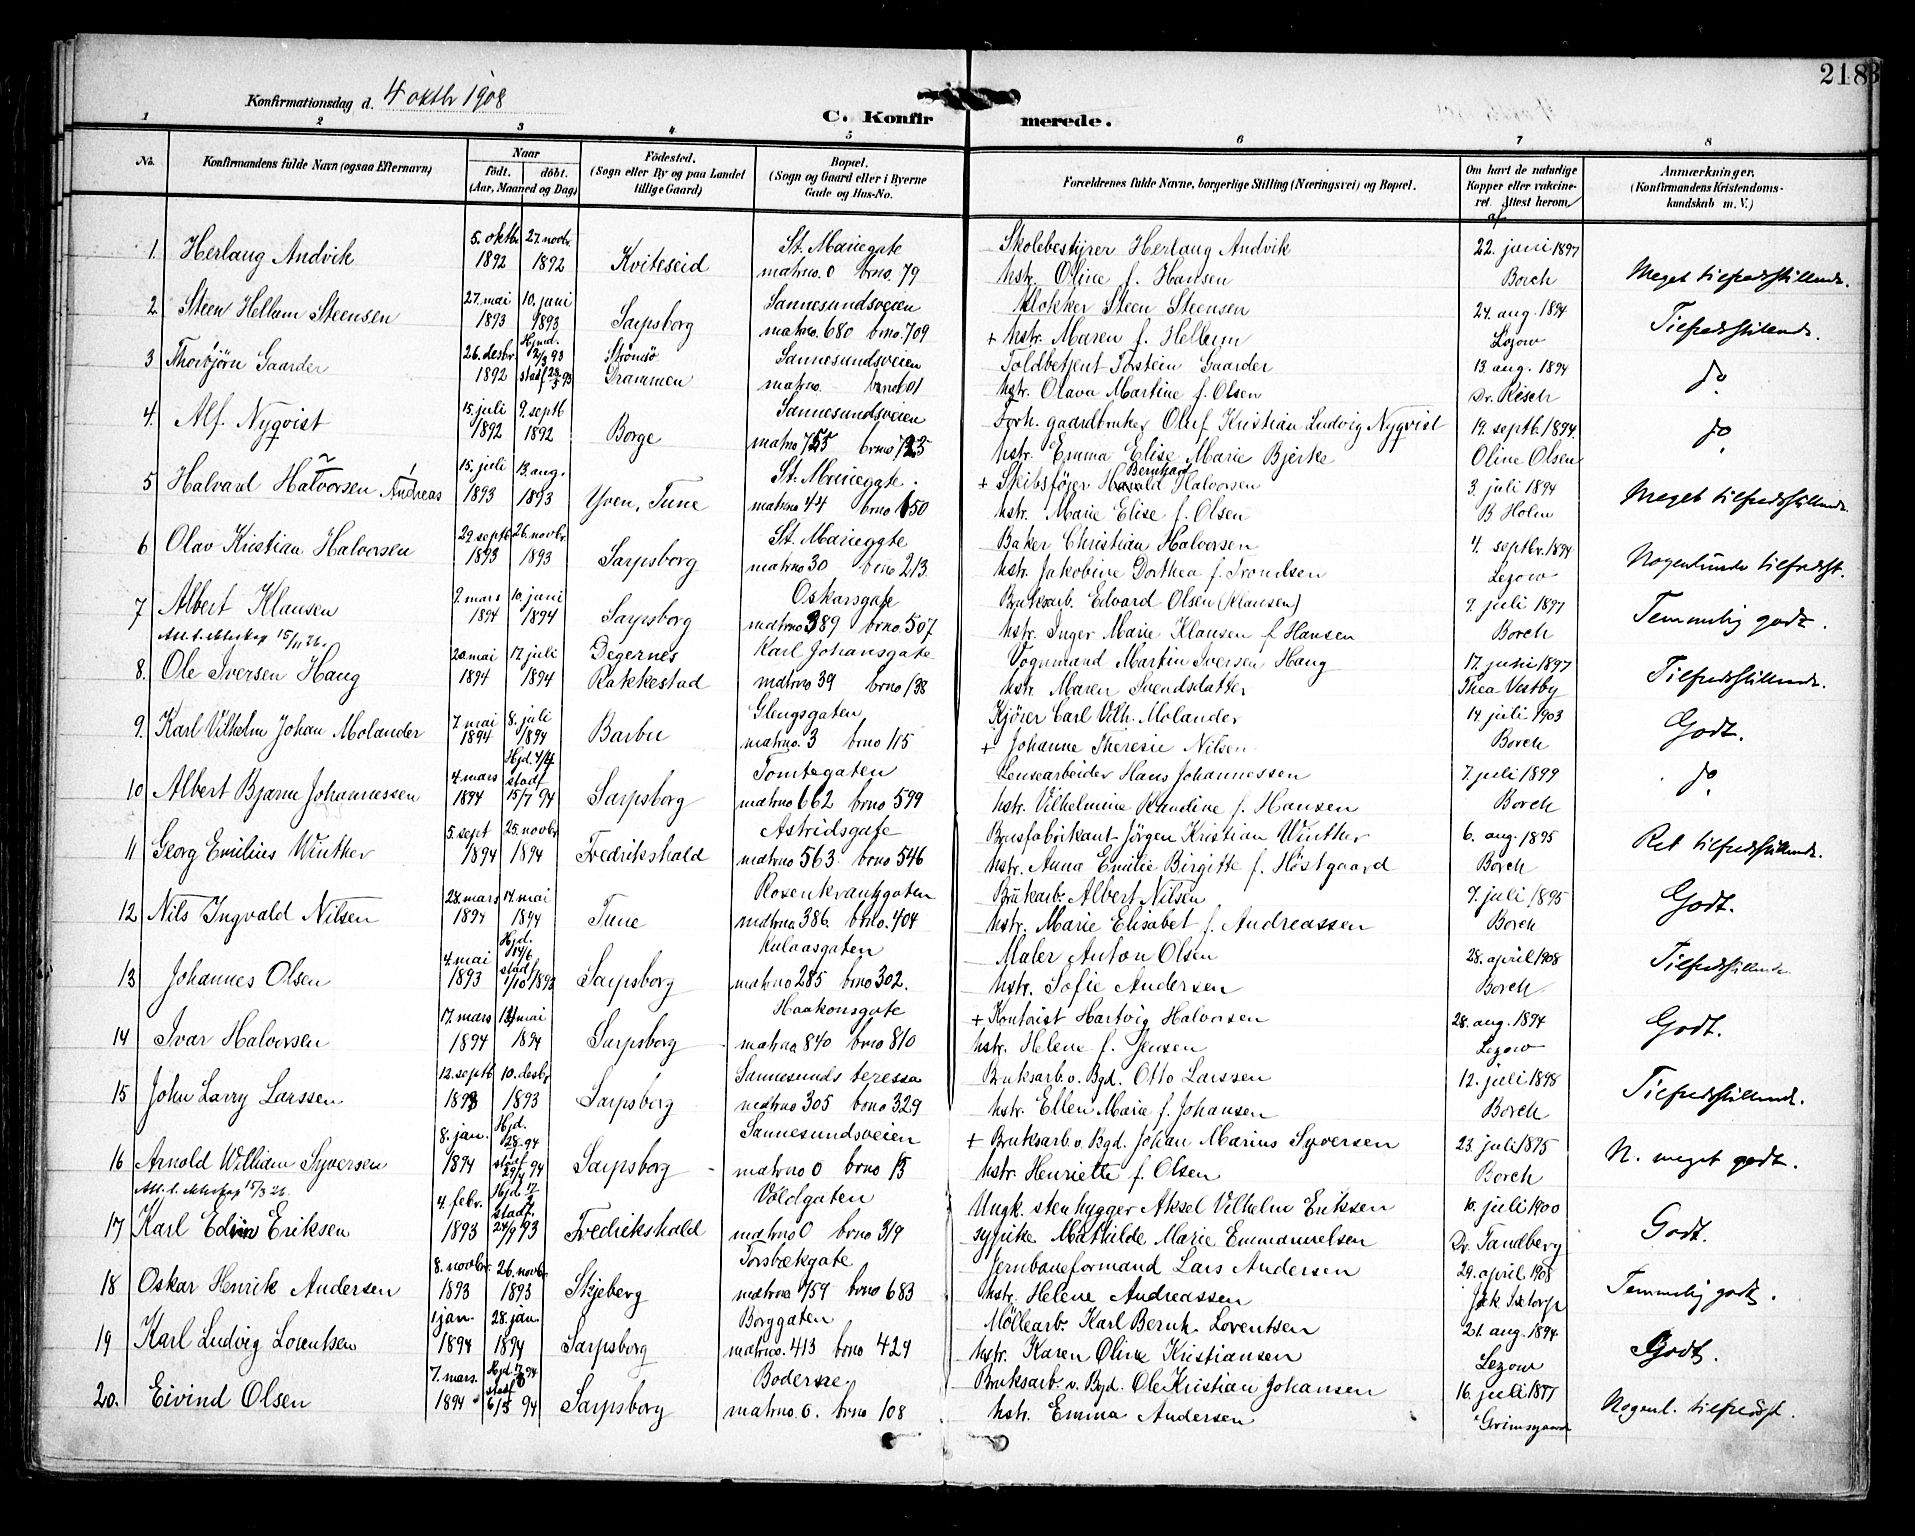 218
Konfirmationsdag d. 4 oktbr 1908
C. Konfirmerede.
1 2 3 4 5 6 7 8
No. Konfirmandens fulde Navn (ogsaa Efternavn) Naar født. døbt. (Aar, Maaned og Dag) Fødested. (Sogn eller By og paa Landet tillige Gaard) Bopæl. (Sogn og Gaard eller i Byerne Gade og Hus-No. Forældrenes fulde Navne, borgerlige Stilling (Næringsvei) og Bopæl. Om havt de naturlige Kopper eller vakcineret. Attest herom af Anmærkninger. (Konfirmandens Kristendomskundskab m. V.)
5. oktbr. 27. novbr. St. Mariegate Skolebestyrer Herlaug Andvik 22. juni 1897
1. Herlaug Andvik 1892 1892 Kviteseid matrno. 0 brno. 79 hstr. Oline f. Hansen Borch Meget tilfredsstillende.
27. mai 10. juni Sannesundsveien Klokker Steen Steensen 24. aug. 1894
2. Steen Hellum Steensen 1893 1893 Sarpsborg matrno. 680 brno. 709 + hstr. Maren f. Hellum Lezow Tilfredsstillende.
26. desbr. Hjmd. 2/3 93 Strømsø Sannesundsveien Toldbetjent Torstein Gaarder 13. aug. 1894
3 Thorbjörn Gaarder 1892 stadf. 28/5 93 Drammen matrno. hstr. Olava Martine f. Olsen Dr. Resch do
15. juli 9. septb Sannesundsveien Forh. gaardbruker Oluf Kristian Ludvig Nyqvist 19. septb. 1894.
4. Alf. Nyqvist 1892 1892 Borge matrno 755 brno hstr. Emma Elise Marie Bjerke Oline Olsen do
15. juli 13. aug. St. Mariegate. + Skibsfører Bernhard Halvorsen 3. juli 1894
5 Halvard Halvorsen Andreas 1893 1893 Yven, Tune matrno 44 brno 650 hstr. Marie Elise f. Olsen B Holm Meget tilfredsstillende.
29. septb 26. novbr. St. Mariegate Baker Christian Halvorsen 4. septbr. 1894
6 Olav Kristian Halvorsen 1893 1893 Sarpsborg matrno 30 brno 213. hstr. Jakobine Dorthea f. Trondsen Lezow Nogenlunde tilfredsst.
2. mars 10. juni Oskarsgate Bruksarb. Edvard Olsen (Klausen) 9. juli 1897
7 Albert Klausen 1894 1894 Sarpsborg matrno 389 brno. 507 hstr. Inger Marie Klausen f Hansen Borch Temmelig godt.
15/11 26.
20 mai 17. juli Degernes Karl Johansgate Vognmand Martin Iversen Haug 17. juni 1897
8. Ole Iversen Haug 1894 1894 Rakkestad matrno 39 brno 138 hstr. Maren Svendsdatter Thea Vestby Tilfredsstillende.
7. mai 8. juli Glengsgaten Kjører Carl Vilh. Molander 14. juli 1903
9. Karl Vilhelm Johan Molander 1894 1894 Barbu matrno. 3 brno 115 + Johanne Theresie Nilsen Borch Godt.
4. mars Hjd. 4/4 stadf Tomtegaten Lensearbeider Hans Johannessen 7. juli 1899
10 Albert Bjarne Johannessen 1894 15/7 94 Sarpsborg matrno 662 brno 599 hstr. Vilhelmine Randine f. Hansen Borch do
5. sept 25. novbr Astridsgate Brusfabrikant Jørgen Kristian Winther 6. aug. 1895
11 Georg Emilius Winther 1894 1894 Fredrikshald matrno 563. brno 546 hstr. Anna Emilie Birgitte f. Höstgaard Borch Ret tilfredsstillende.
28. mars 14. mai Rosenkrantzgaten Brukarb. Albert Nilsen 9. juli 1895
12 Nils Ingvald Nilsen 1894 1894 Tune matrno 386. brno. 404 hstr. Marie Elisabet f. Andreassen Borch Godt.
4. mai Hjd. 14/6 stadf Kulaasgaten Maler Anton Olsen 28. april 1908
13 Johannes Olsen 1893 1/10 1893 Sarpsborg matrno 285 brno 302. hstr. Sofie Andersen Borch Tilfredsstillende
17. mars mai Haakonsgate + Kontorist Hartvig Halvorsen 28. aug. 1894
14 Ivar Halvorsen 1894 1894 Sarpsborg matrno 840 brno 810 hstr. Helene f. Jensen Lezow Godt.
12. septb 10. desbr Sannesunds teressa Bruksarb. o. Bgd. Otto Larssen 12. juli 1898
15 John Larry Larssen 1893 1893 Sarpsborg matrno 305 brno 329 hstr. Ellen Marie f. Johansen Borch Tilfredsstillende.
8. jan. Hjd. 28. 94 Sannesundsveien + Bruksarb. o. Bgd. Johan Marius Syversen 23. juli 1895
16 Arnold William Syversen 1894 stadf 29/4 94 Sarpsborg matrno 0 brno 15 hstr. Henriette f. Olsen Borch N. meget godt.
15/3 26.
4. febr. Hjd 17/2 stadf. Voldgaten Ungk. stenhugger Aksel Vilhelm Eriksen 10. juli 1900
17 Karl Edvin Eriksen 1893 24/9 93 Fredrikshald matrno 0 brno 319 sypike Mathilde Marie Emmanuelsen Dr. Tandberg Godt.
8. novbr. 26. novbr. Torsbækgate Jernbaneformand Lars Andersen 29. april 1908
18 Oskar Henrik Andersen 1893 1893 Skjeberg matrno 759 brno 683 hstr. Helene Andreassen Temmelig godt.
1 jan. 28. jan. Borggaten Möllearb. Karl Bernh. Lorentsen 21. aug. 1894
19 Karl Ludvig Lorentsen 1894 1894 Sarpsborg matrno. 413 brno 429 hstr. Karen Oline Kristiansen Lezow Godt.
7. mars. Hjd. stadf Bodersze. Bruksarb. o. Bgd. Ole Kristian Johansen 16. juli
20. Eivind Olsen 1894 6/5 94 Sarpsborg matrno. 0. brno 108 hstr. Emma Andersen Grimsgaard Nogenl. tilfredsst.